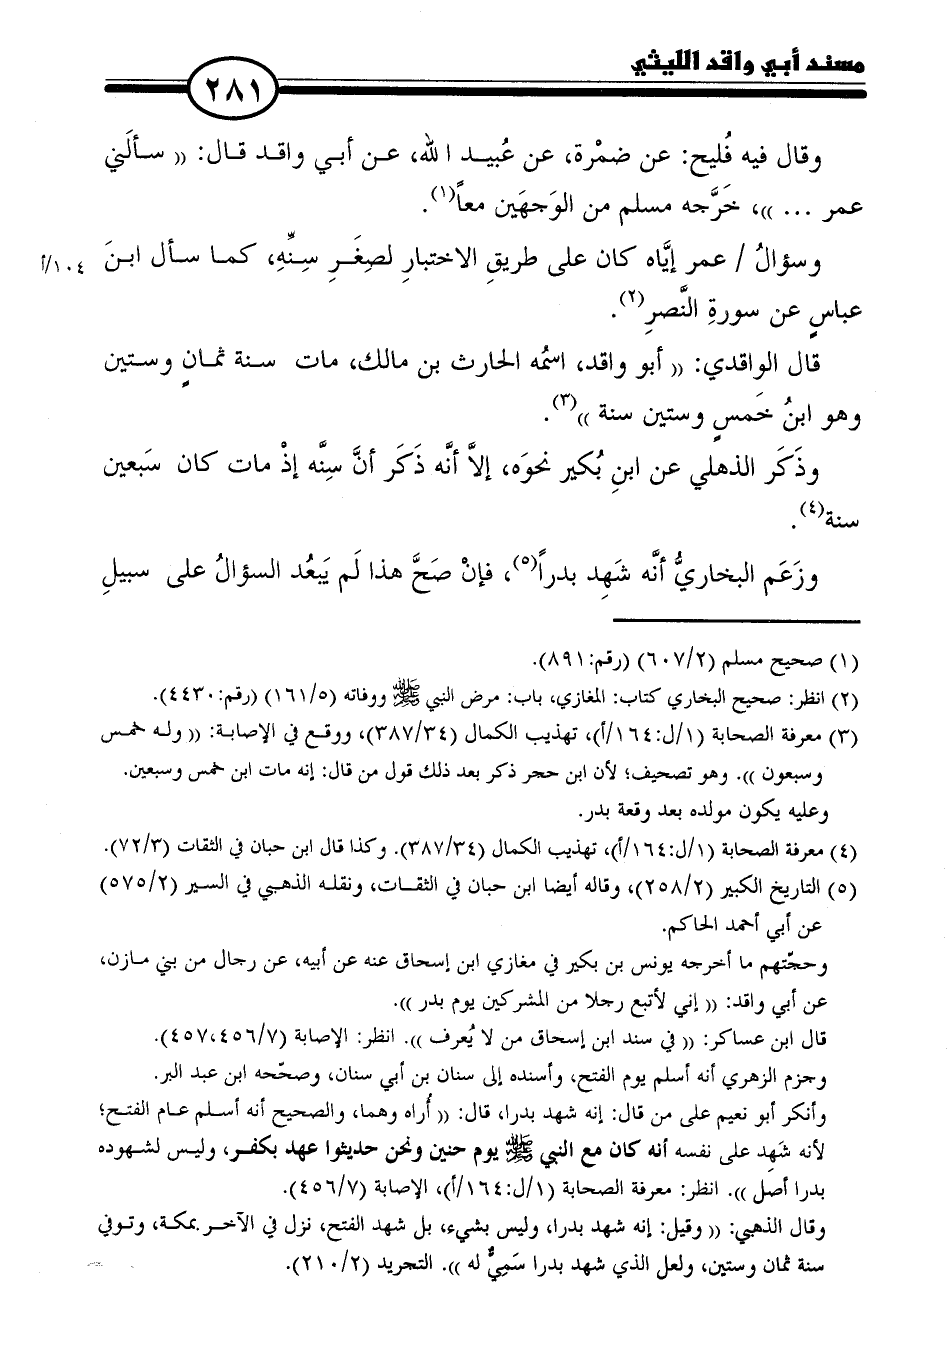 مسند أبي واقد الليثي
٢٨١
وقال فيه فُليح: عن ضمْرة، عن عُبيد الله، عن أبي واقد قال: (( سألَني
عمر ... ))، خَرَّجه مسلم من الوَجهَين معاً(١).
وسؤالُ / عمر إيَّاه كان على طريقِ الاختبارِ لصِغَرِ سِنِّهِ، كما سأل ابنَ ١٠٤/أ
عباسٍ عن سورةِ النَّصرِ(٢).
قال الواقدي: (( أبو واقد، اسمُه الحارث بن مالك، مات سنة ثمانٍ وستين
وهو ابنُ خَمسٍ وستين سنة ))(٣).
وذَكَر الذهلي عن ابنِ بُكير نحوَه، إلاَّ أنَّه ذَكَر أنَّ سِنَّه إذْ مات كان سَبعين
سنة(٤).
وزَعَم البخاريُّ أنَّه شَهِد بدراً(٥)، فإنْ صَحَّ هذا لَم يَبعُد السؤالُ على سبيلِ
(١) صحيح مسلم (٦٠٧/٢) (رقم: ٨٩١).
(٢) انظر: صحيح البخاري كتاب: المغازي، باب: مرض النبي ﷺ ووفاته (١٦١/٥) (رقم: ٤٤٣٠).
(٣) معرفة الصحابة (١/ل:١٦٤/أ)، تهذيب الكمال (٣٨٧/٣٤)، ووقع في الإصابة: (( وله خمس
وسبعون )). وهو تصحيف؛ لأن ابن حجر ذكر بعد ذلك قول من قال: إنه مات ابن خمس وسبعين.
وعليه يكون مولده بعد وقعة بدر.
(٤) معرفة الصحابة (١/ل:١٦٤/أ)، تهذيب الكمال (٣٨٧/٣٤). وكذا قال ابن حبان في الثقات (٧٢/٣).
(٥) التاريخ الكبير (٢٥٨/٢)، وقاله أيضا ابن حبان في الثقات، ونقله الذهبي في السير (٥٧٥/٢)
عن أبي أحمد الحاكم.
وحجّتهم ما أخرجه يونس بن بكير في مغازي ابن إسحاق عنه عن أبيه، عن رجال من بني مازن،
عن أبي واقد: (( إني لأتبع رجلا من المشركين يوم بدر )).
قال ابن عساكر: (( في سند ابن إسحاق من لا يُعرف )). انظر: الإصابة (٤٥٦/٧،٤٥٧).
وجزم الزهري أنه أسلم يوم الفتح، وأسنده إلى سنان بن أبي سنان، وصحّحه ابن عبد البر.
وأنكر أبو نعيم على من قال: إنه شهد بدرا، قال: (( أُراه وهما، والصحيح أنه أسلم عام الفتح؛
لأنه شَهِد على نفسه أنه كان مع النبي ﷺ يوم حنين ونحن حديثوا عهد بكفر، وليس لشهوده
بدرا أصل )). انظر: معرفة الصحابة (١/ل:١٦٤/أ)، الإصابة (٤٥٦/٧).
وقال الذهبي: (( وقيل: إنه شهد بدرا، وليس بشيء، بل شهد الفتح، نزل في الآخر بمكة، وتوفي
سنة ثمان وستين، ولعل الذي شهد بدرا سَمِيٌّ له )). التجريد (٢١٠/٢).